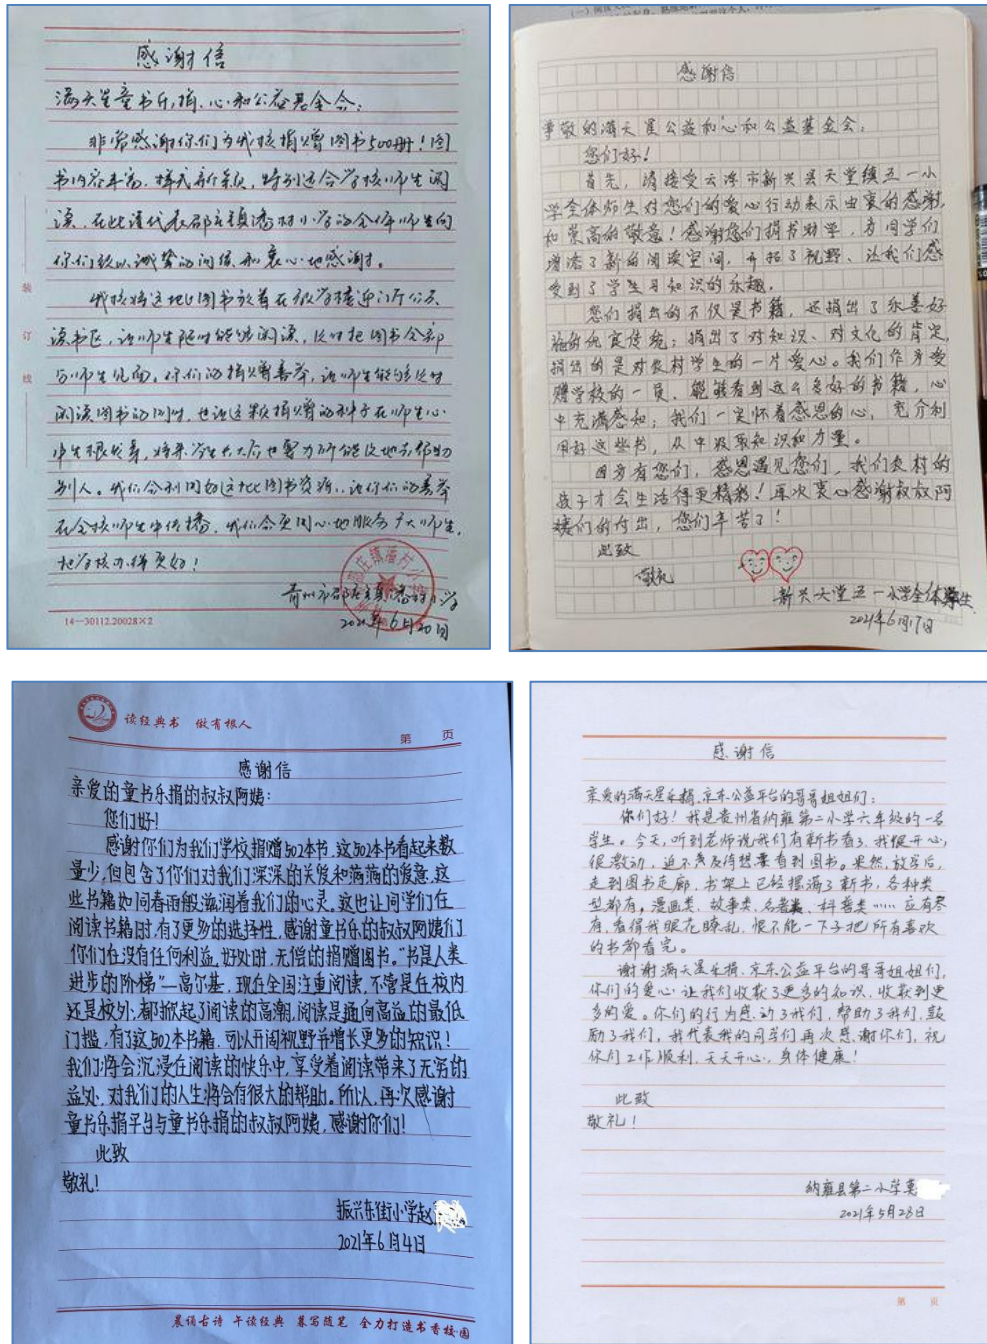 感谢信
满天星童书乐捐、心和公益基金会：
非常感谢你们为我校捐赠图书500册！图
书内容丰富，样式新颖，特别适合学校师生阅
读，在此谨代表邵庄镇潘村小学的全体师生向
你们致以诚挚的问候和衷心地感谢。
我校将这批图书放着在教学楼迎门厅公共
读书区，让师生随时能够阅读，及时把图书全部
与师生见面，你们的捐赠善举，让师生能够及时
阅读图书的同时，也让这颗捐赠的种子在师生心
中生根发芽，将来学生长大后也要力所能及地去帮助
别人。我们会利用好这批图书资源，让你们的善举
在全校师生中传播，我们会更用心地服务广大师生，
把学校办得更好！
青州市邵庄镇潘村小学
2021年6月20日
装
订
线
14—30112.20028×2
感谢信
尊敬的满天星公益和心和公益基金会：
您们好！
首先，请接受云浮市新兴县天堂镇五一小
学全体师生对您们的爱心行动表示由衷的感谢，
和崇高的敬意！感谢您们捐书助学，为同学们
增添了新的阅读空间，开拓了视野、让我们感
受到了学生习知识的乐趣。
您们捐出的不仅是书籍，还捐出了乐善好
施的优良传统；捐出了对知识、对文化的肯定，
捐出的是对农村学生的一片爱心。我们作为受
赠学校的一员，能够看到这么多好的书籍，心
中充满感知；我们一定怀着感恩的心，充分利
用好这些书，从中吸取知识和力量。
因为有您们，感恩遇见您们，我们农村的
孩子才会生活得更精彩！再次衷心感谢叔叔阿
姨们的付出，您们辛苦了！
此致
敬礼
新兴天堂五一小学全体学生
2021年6月17日
读经典书 做有根人
第 页
感谢信
亲爱的童书乐捐的叔叔阿姨：
您们好！
感谢你们为我们学校捐赠502本书，这502本书看起来数
量少，但包含了你们对我们深深的关爱和满满的爱意，这
些书籍如同春雨般滋润着我们的心灵。这也让同学们在
阅读书籍时，有了更多的选择性，感谢童书乐的叔叔阿姨们
你们在没有任何利益，好处时，无偿的捐赠图书。“书是人类
进步的阶梯”—高尔基，现在全国注重阅读，不管是在校内
还是校外；都掀起了阅读的高潮，阅读是通向高益的最低
门槛，有了这502本书籍，可以开阔视野并增长更多的知识！
我们将会沉浸在阅读的快乐中，享受着阅读带来了无穷的
益处，对我们的人生将会有很大的帮助。所以，再次感谢
童书乐捐平台与童书乐捐的叔叔阿姨，感谢你们！
此致
敬礼！
振兴东街小学赵
2021年6月4日
晨诵古诗 午读经典 暮写随笔 全力打造书香校园
感谢信
亲爱的满天星乐捐、京东公益平台的哥哥姐姐们：
你们好！我是贵州省纳雍第二小学六年级的一名
学生。今天，听到老师说我们有新书看了，我很开心，
很激动，迫不及待想要看到图书。果然，放学后，
走到图书走廊，书架上已经摆满了新书，各种类
型都有，漫画类、故事类、名著类、科普类……应有尽
有，看得我眼花瞭乱，恨不能一下子把所有喜欢
的书都看完。
谢谢满天星乐捐、京东公益平台的哥哥姐姐们，
你们的爱心让我们收获了更多的知识，收获到更
多的爱。你们的行为感动了我们，帮助了我们，鼓
励了我们，我代表我的同学们再次感谢你们，祝
你们工作顺利，天天开心，身体健康！
此致
敬礼！
纳雍县第二小学
2021年5月28日
第 页